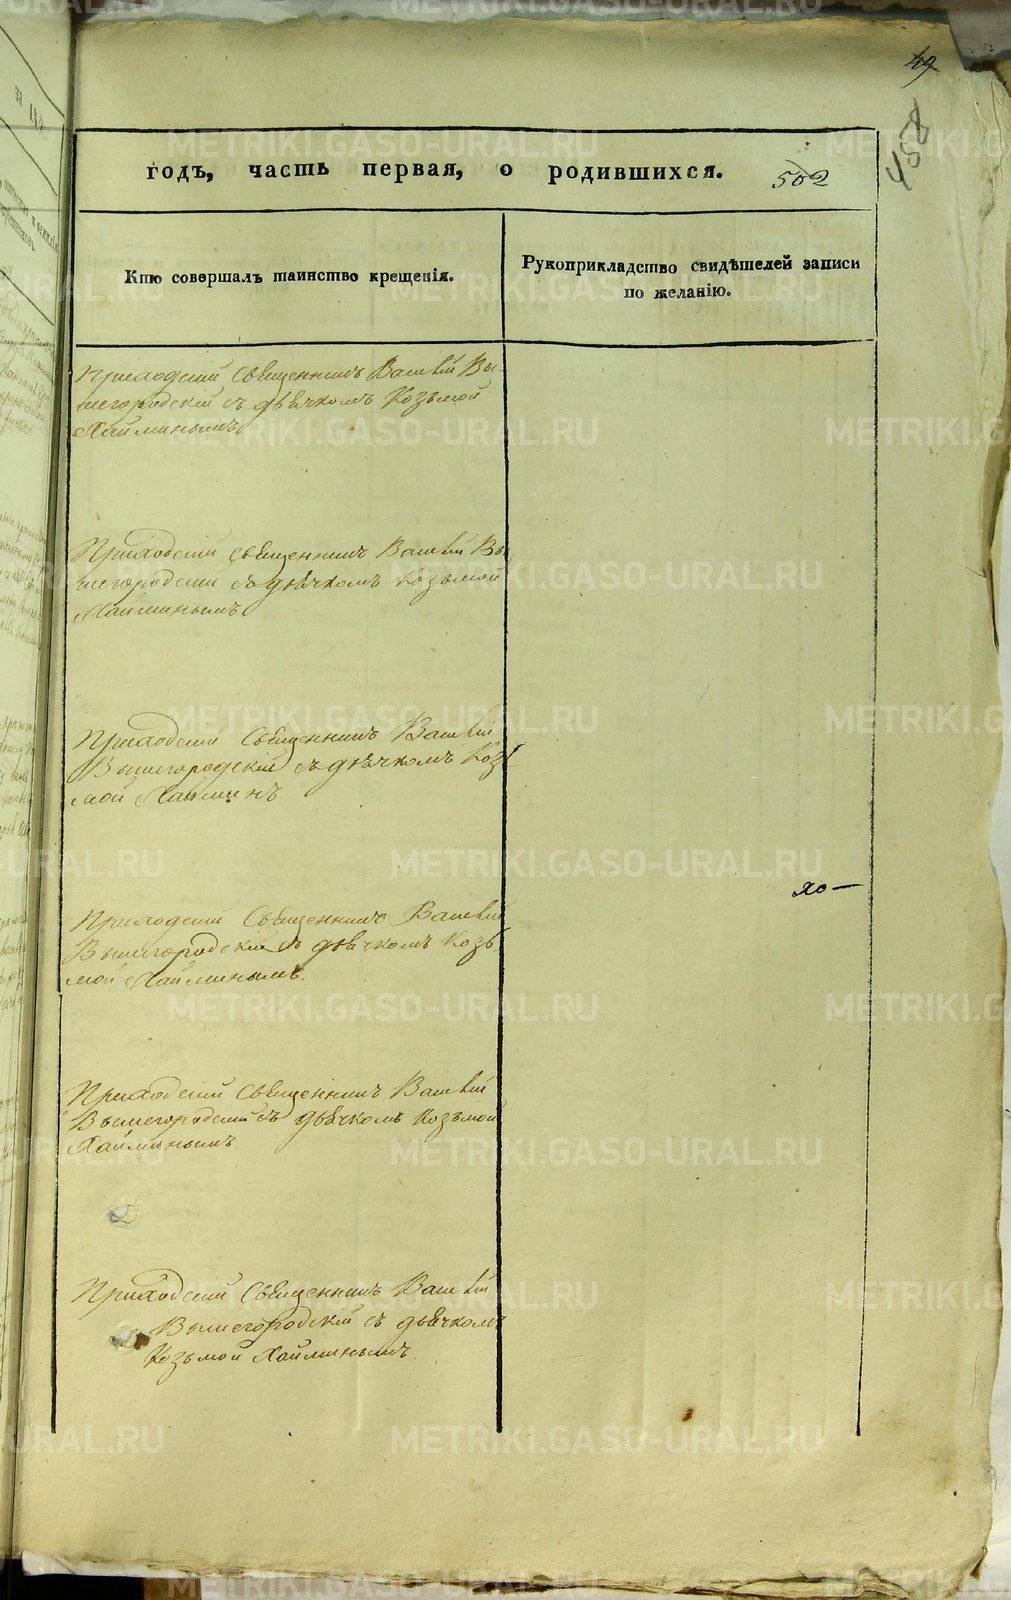 49
458
годъ, часть первая, о родившихся. 502
Кто совершалъ таинство крещенія.
Рукоприкладство свидѣтелей записи
по желанію.
Приходскій Священникъ Василій Вы-
шегородскій съ дьячкомъ Козьмой
Хайминымъ
Приходскій священникъ Василій Вы
шегородскій съ дьячкомъ Козьмой
Хайминымъ
Приходскій Священникъ Василій
Вышегородскій съ дьячкомъ Козь
мой Хайминъ
хо—
Приходскій Священникъ Василій
Вышегородскій съ дьячкомъ Козь
мой Хайминымъ.
Приходскій Священникъ Василій
Вышегородскій съ дьячкомъ Козьмой
Хайминымъ
Приходскій Священникъ Василій
Вышегородскій съ дьячкомъ
Козьмой Хайминымъ.
METRIKI.GASO-URAL.RU